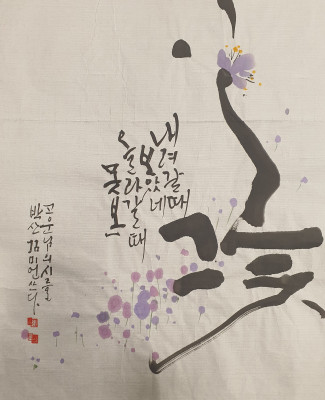 내려갈때
보았네
올라갈때
못본
꽃
고은님의시를
박산 쓰다.